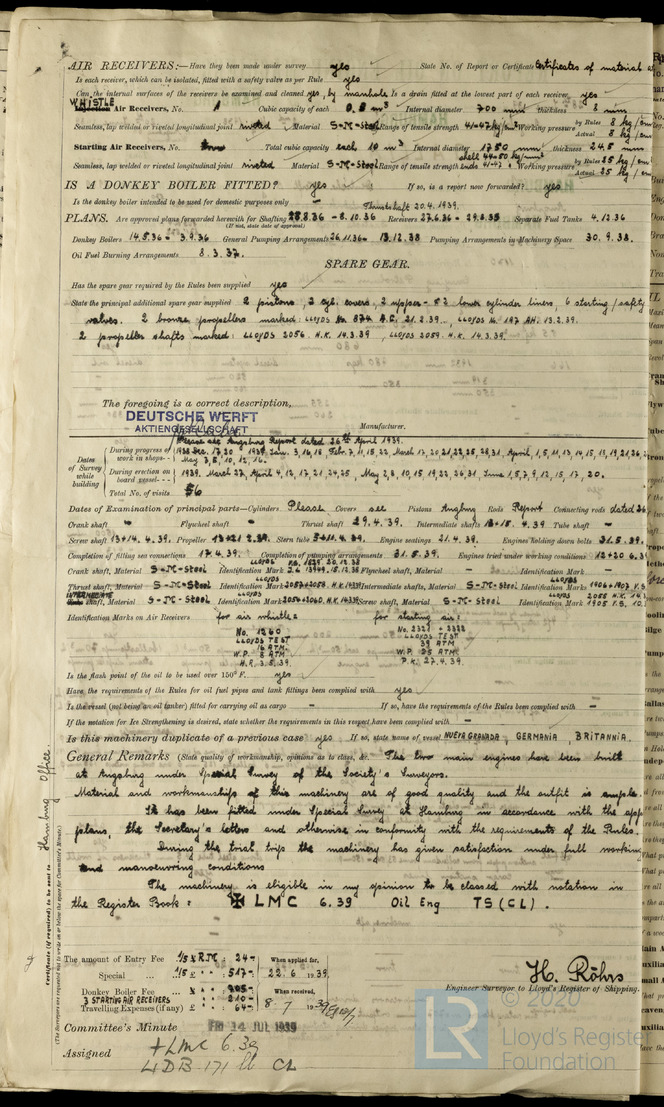 AIR RECEIVERS:—Have they been made under survey yes State No. of Report or Certificate Certificates of material
Is each receiver, which can be isolated, fitted with a safety valve as per Rule yes
Can the internal surfaces of the receivers be examined and cleaned yes, by manhole Is a drain fitted at the lowest part of each receiver yes
WHISTLE Air Receivers, No. 1 Cubic capacity of each 0.5 m³ Internal diameter 700 mm thickness 8 mm
Seamless, lap welded or riveted longitudinal joint riveted Material S-M-Steel Range of tensile strength 41-47 kg/mm² Working pressure by Rules 8 kg/cm
Actual 8 kg/cm
Starting Air Receivers, No. Total cubic capacity each 10 m³ Internal diameter 1750 mm thickness 24,5 mm
Seamless, lap welded or riveted longitudinal joint riveted Material S-M-Steel Range of tensile strength shell 44-50 kg/mm² ends 41-47 Working pressure by Rules 25 kg/cm
Actual 25 kg/cm
IS A DONKEY BOILER FITTED? yes If so, is a report now forwarded? yes
Is the donkey boiler intended to be used for domestic purposes only — Thrustshaft 20.4.1939.
PLANS. Are approved plans forwarded herewith for Shafting 28.8.36 - 8.10.36 Receivers 27.6.36 - 29.8.35 Separate Fuel Tanks 4.12.36
(If not, state date of approval)
Donkey Boilers 14.5.36 - 3.9.36 General Pumping Arrangements 26.11.36 - 13.12.38 Pumping Arrangements in Machinery Space 30.9.38.
Oil Fuel Burning Arrangements 8.3.37.
SPARE GEAR.
Has the spare gear required by the Rules been supplied yes
State the principal additional spare gear supplied 2 pistons, 2 cyl. covers, 2 upper- & 2 lower cylinder liners, 6 starting/safety
valves. 2 bronze propellers marked: LLOYDS No 874 A.C. 21.2.39., LLOYDS No. 197 AH. 13.2.39.
2 propeller shafts marked: LLOYDS 2056 H.K. 14.3.39, LLOYDS 2059. H.K. 14.3.39.
The foregoing is a correct description,
DEUTSCHE WERFT
AKTIENGESELLSCHAFT
Manufacturer.
Please see Augsburg Report dated 26th April 1939.
Dates of Survey while building
During progress of work in shops - - 1938 Dec. 17, 20 1939 Jan. 3, 16, 18 Febr. 7, 11, 15, 22 March 17, 20, 21, 22, 25, 28, 31, April, 1, 5, 11, 13, 14, 15, 19, 21, 26,
May 3, 8, 10, 12, 16.
During erection on board vessel - - - 1939. March 27, April 4, 12, 17, 21, 24, 25, May 2, 8, 10, 15, 19, 22, 26, 31, June 1, 5, 7, 9, 12, 15, 17, 20.
Total No. of visits 56
Dates of Examination of principal parts—Cylinders Please Covers see Pistons Augbug Rods Report Connecting rods dated 26
Crank shaft " Flywheel shaft — Thrust shaft 29.4.39. Intermediate shafts 13+15. 4.39 Tube shaft —
Screw shaft 13+14. 4.39. Propeller 13+21 2.39. Stern tube 5+11.4.39. Engine seatings 21.4.39. Engines holding down bolts 31.5.39.
Completion of fitting sea connections 17.4.39. Completion of pumping arrangements 31.5.39. Engines tried under working conditions 12+20 6.3
Crank shaft, Material S-M-Steel Identification Mark Flywheel shaft, Material — Identification Mark —
Thrust shaft, Material S-M-Steel Identification Mark LLOYDS 2057+2058 H.K. 14.3.39 Intermediate shafts, Material S-M-Steel Identification Marks LLOYDS 1906+1907 F.S.
INTERMEDIATE shaft, Material S-M-Steel Identification Mark LLOYDS 2056+2060. H.K. 14.3.39 Screw shaft, Material S-M-Steel Identification Mark
Identification Marks on Air Receivers for air whistle: for starting air:
No. 1260 No. 2321 + 2322
LLOYDS TEST LLOYDS TEST
16 ATM 39 ATM
W.P. 8 ATM W.P. 25 ATM
H.R. 3.5.39. P.K. 27.4.39.
Is the flash point of the oil to be used over 150° F. yes
Have the requirements of the Rules for oil fuel pipes and tank fittings been complied with yes
Is the vessel (not being an oil tanker) fitted for carrying oil as cargo — If so, have the requirements of the Rules been complied with —
If the notation for Ice Strengthening is desired, state whether the requirements in this respect have been complied with —
Is this machinery duplicate of a previous case yes If so, state name of vessel NUEVA GRANADA, GERMANIA, BRITANNIA.
General Remarks (State quality of workmanship, opinions as to class, &c. The two main engines have been built
at Augsburg under Special Survey of the Society's Surveyors.
Material and workmanship of this machinery are of good quality and the outfit is ample.
It has been fitted under Special Survey at Hamburg in accordance with the app
plans, the Secretary's letters and otherwise in conformity with the requirements of the Rules.
During the trial trips the machinery has given satisfaction under full working
and manoeuvring conditions
The machinery is eligible in my opinion to be classed with notation in
the Register Book: ✠ LMC 6.39 Oil Eng TS (CL).
Certificate (if required) to be sent to Hamburg Office.
(The Surveyors are requested not to write on or below the space for Committee's Minute.)
The amount of Entry Fee RM : 24- When applied for,
Special ... 517- 22.6.1939.
Donkey Boiler Fee ... 205- When received,
3 STARTING AIR RECEIVERS 210-
Travelling Expenses (if any) 64- 8-7 1939
H. Röhrs
Engineer Surveyor to Lloyd's Register of Shipping.
Committee's Minute FRI 14 JUL 1939
Assigned +LMC 6.39
DB 171 lb CL
LR © 2020
Lloyd's Register
Foundation